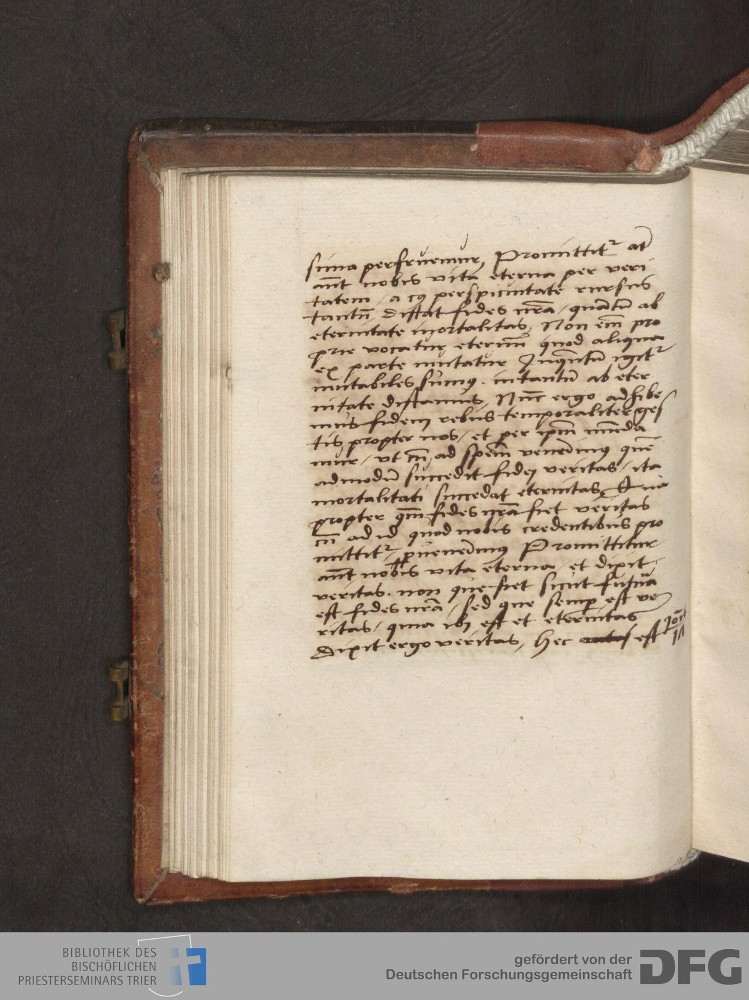 sima perfruemur, Promittitr at
aūt nobis vita eterna per veri
tatem, a cq perspicuitate rursus
tantū distat fides nr̄a, quātū ab
eternitate mortalitas, Non em̄ pro
prie vocatur eternū quod aliqua
ex parte mutatur Inquātū igitr
mutabiles sumq, intantū ab eter
nitate distamus, Nūc ergo adhibe
mus fidem rebus temporaliter ges
tis propter nos, et per ip̄am mūda
mur, vt cū ad speciem venerimq quē
admodū succedit fidei veritas, ita
mortalitati succedat eternitas, Qua
propter qm̄ fides nr̄a fiet veritas
cū ad id quod nobis credentibus pro
mittitr pueneimq Promittitur
aūt nobis vita eterna, et dixit
veritas, non que fiet sicut futura
est fides nr̄a, sed que semp est ve
ritas, quia ibi est et eternitas
Dixit ergo veritas, Hec est
Ioīs
17
BIBLIOTHEK DES
BISCHÖFLICHEN
PRIESTERSEMINARS TRIER
gefördert von der
Deutschen Forschungsgemeinschaft
DFG